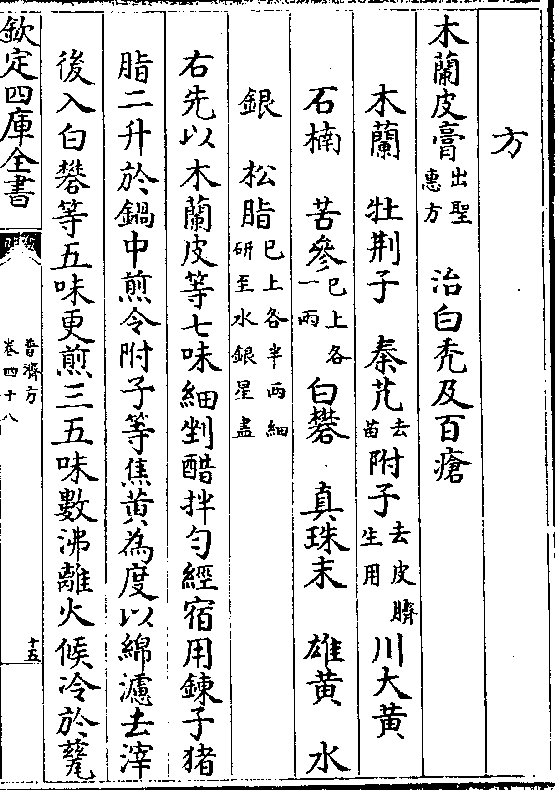 方
木蘭皮膏出聖惠方　治白禿及百瘡
木蘭　牡荆子　秦艽去苗附子去皮臍生用川大黄
石楠　苦參已上各一兩白礬　真珠末　雄黄　水
銀　松脂已上各半两細研至水銀星盡
右先以木蘭皮等七味細剉醋拌匀經宿用鍊子猪
脂二升於鍋中煎令附子等焦黄為度以綿濾去滓
後入白礬等五味更煎三五味數沸離火候冷於甆
欽定四庫全書
普濟方
卷四十八
十五